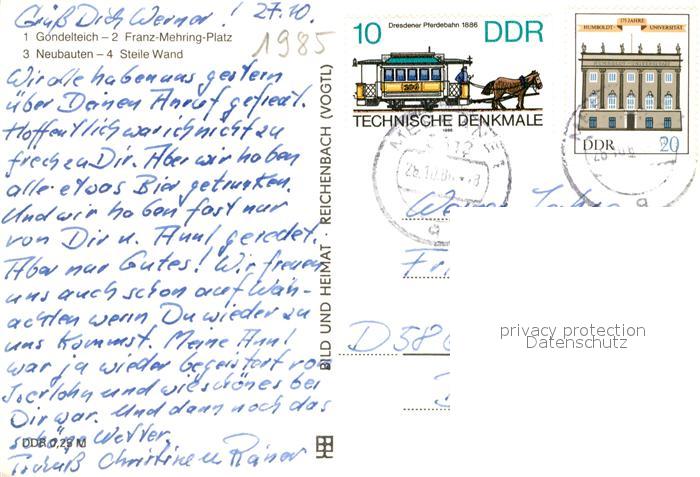 Grüß Dich Werner! 27.10.
1985
1 Gondelteich – 2 Franz-Mehring-Platz
3 Neubauten – 4 Steile Wand
Wir alle haben uns gestern
über Deinen Anruf gefreut.
Hoffentlich war ich nicht zu
frech zu Dir. Aber wir haben
alle etwas Bier getrunken.
Und wir haben fast nur
von Dir u. Annl geredet.
Aber nur Gutes! Wir freuen
uns auch schon auf Weih-
nachten wenn Du wieder zu
uns kommst. Meine Annl
war ja wieder begeistert von
Iserlohn und wie schön es bei
Dir war. Und dann noch das
schöne Wetter.
DDR 0,25 M
Christine u. Rainer
BILD UND HEIMAT · REICHENBACH (VOGTL)
Dresdener Pferdebahn 1886
10 DDR
TECHNISCHE DENKMALE
1986
175 JAHRE
HUMBOLDT UNIVERSITÄT
DDR 20
28.10.86
a
a
Werner
D 586
privacy protection
Datenschutz